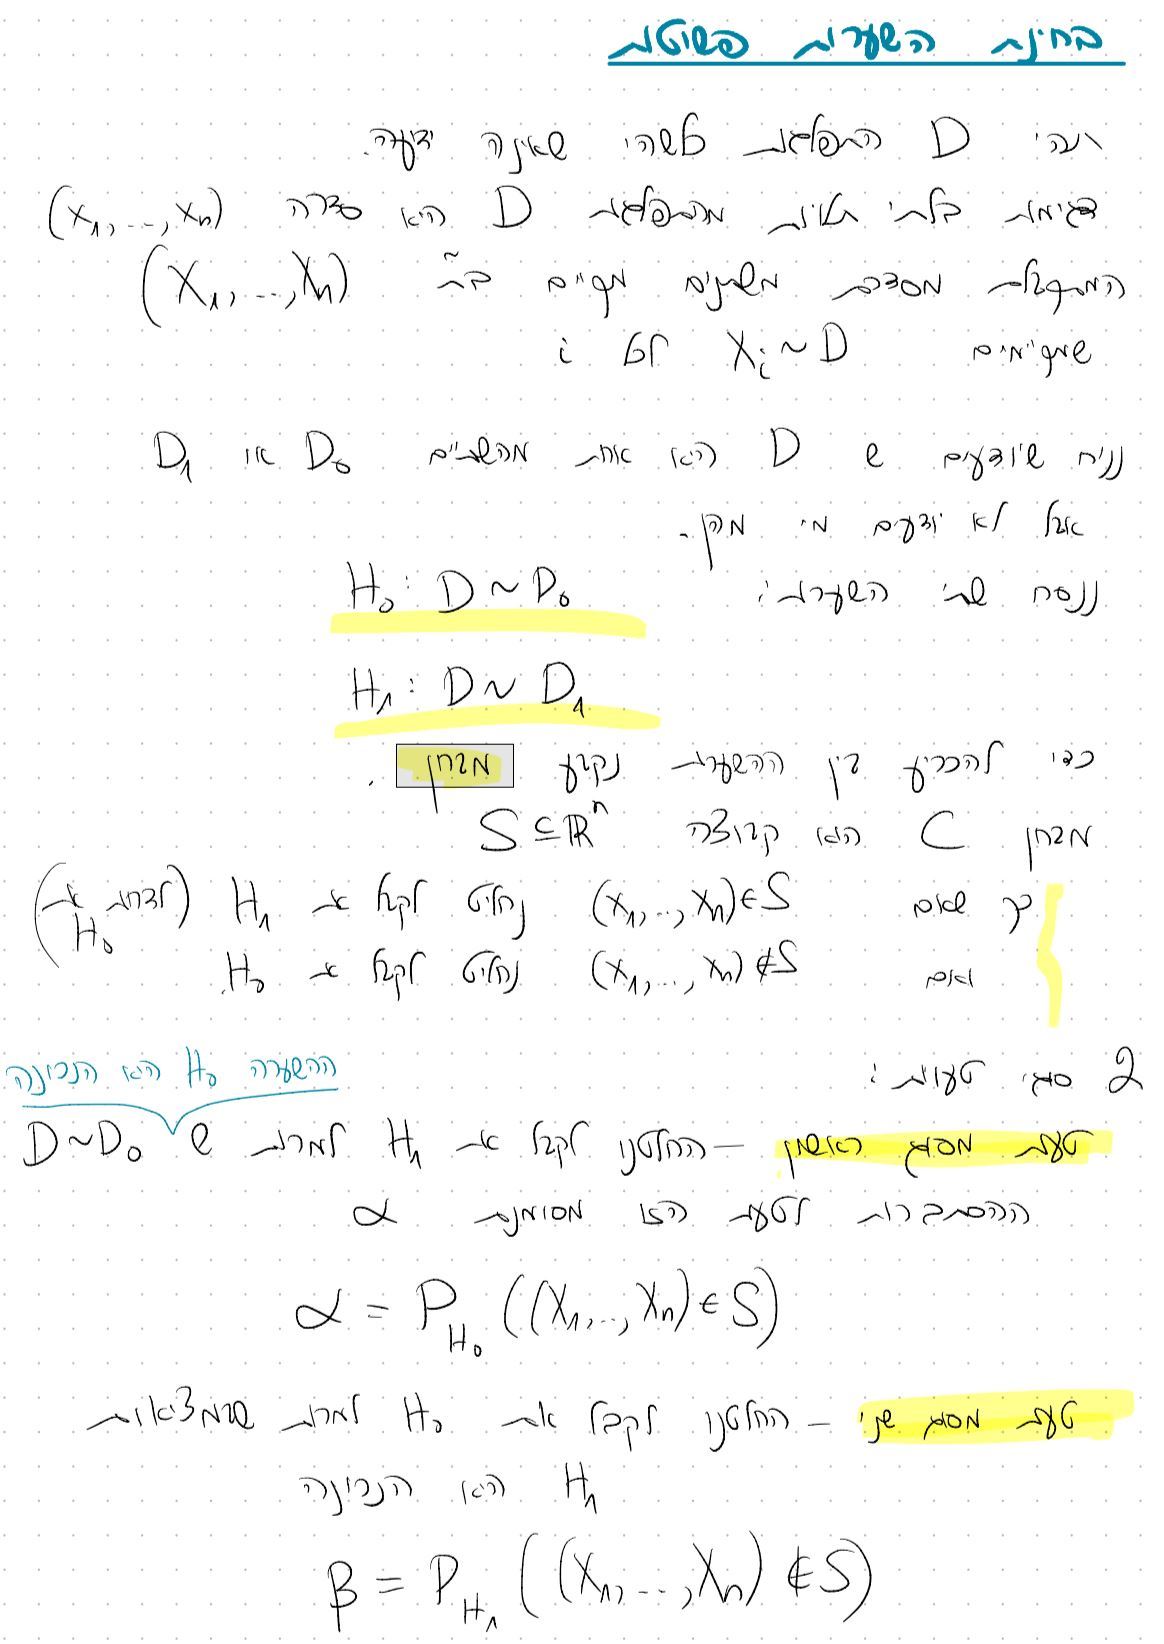 בחינת השערות פשוטות
תהי D התפלגות כלשהי שאינה ידועה.
דגימות בלתי תלויות מהתפלגות D היא סדרה (x₁,...,xₙ)
המתקבלת מסדרת משתנים מקריים בת"ל (X₁,...,Xₙ)
שמקיימים Xᵢ~D לכל i
נניח שיודעים ש D היא אחת מהשתיים D₀ או D₁
אבל לא יודעים מי מהן.
ננסח שתי השערות:
H₀: D~D₀
H₁: D~D₁
כדי להכריע בין ההשערות נקבע מבחן.
מבחן C הוא קבוצה S⊆ℝⁿ
כך שאם (x₁,..,xₙ)∈S נחליט לקבל את H₁ (לדחות את H₀)
ואם (x₁,...,xₙ)∉S נחליט לקבל את H₀.
2 סוגי טעויות:
ההשערה H₀ היא הנכונה
טעות מסוג ראשון – החלטנו לקבל את H₁ למרות ש D~D₀
ההסתברות לטעות הזו מסומנת α
α = P_H₀ ((X₁,..,Xₙ)∈S)
טעות מסוג שני – החלטנו לקבל את H₀ למרות שבמציאות
H₁ היא הנכונה
β = P_H₁ ((X₁,...,Xₙ)∉S)